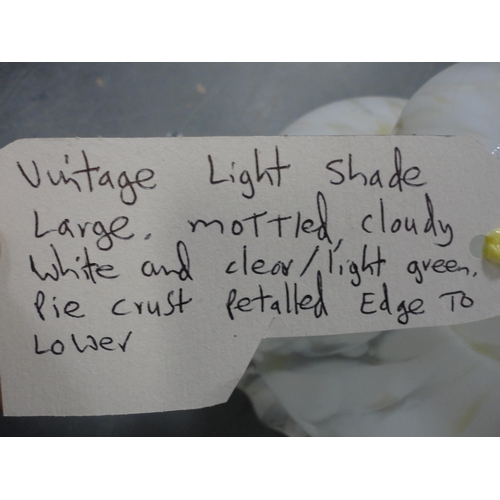 Vintage Light Shade
Large, mottled, cloudy
White and clear/light green.
Pie crust Petalled Edge To
Lower